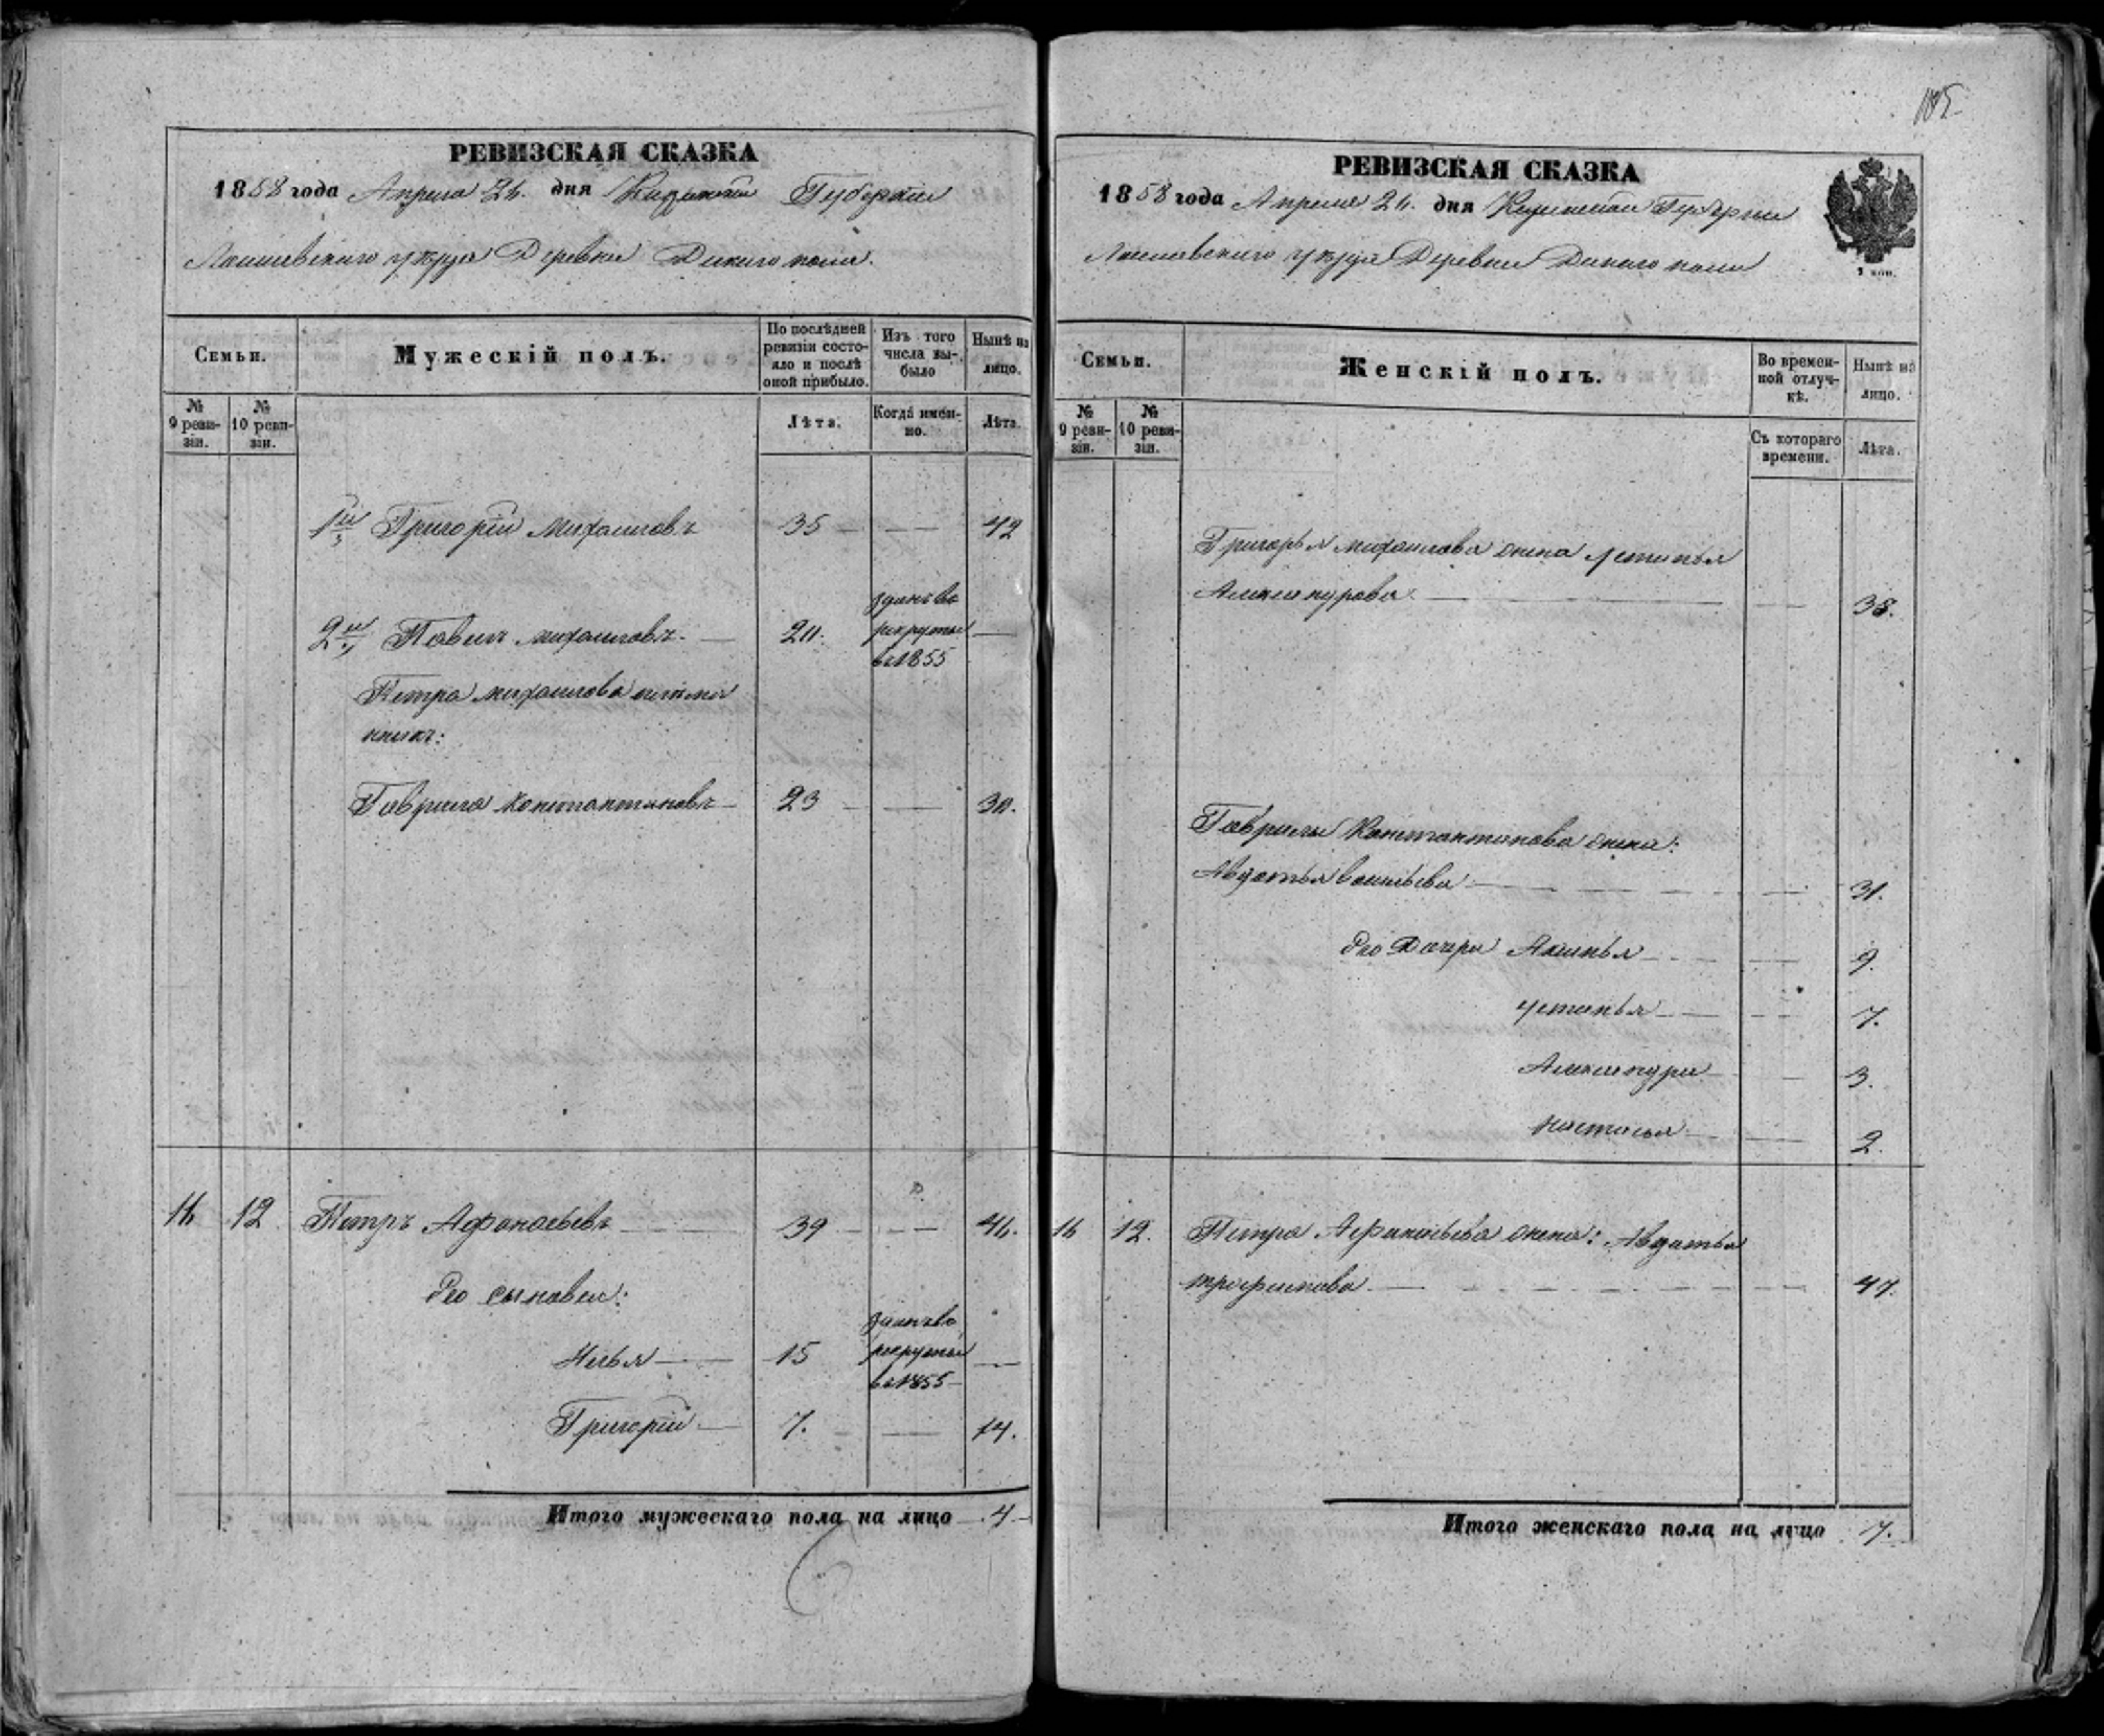 105
РЕВИЗСКАЯ СКАЗКА
1858 года Апреля 26. дня Казанской Губернии
Лаишевскаго уѣзда Деревни Дикаго поля.
Семьи.
Мужескій полъ.
По послѣдней ревизіи состояло и послѣ оной прибыло.
Изъ того числа выбыло
Нынѣ на лицо.
№ 9 ревизіи.
№ 10 ревизіи.
Лѣта.
Когда именно.
Лѣта.
1й Григорій Михаиловъ 35 — 42
2й Павелъ михаиловъ. — 20. зданъ во рекруты в 1855 —
Петра михаилова
Гаврила константиновъ — 23 — 30.
16 12 Петръ Афонасьевъ 39 — 46.
Его сыновья:
Илья — 15 зданъ во рекруты в 1855 —
Григорій — 7. — 14.
Итого мужескаго пола на лицо 4
РЕВИЗСКАЯ СКАЗКА
1858 года Апреля 26. дня Казанской Губернии
Лаишевскаго уѣзда Деревни Дикаго поля
1 коп.
Семьи.
Женскій полъ.
Во временной отлучкѣ.
Нынѣ на лицо.
№ 9 ревизіи.
№ 10 ревизіи.
Съ котораго времени.
Лѣта.
Григорья михаилова жена Устинья
Александрова. — 38.
Гаврилы Константинова жена:
Авдотья васильева — 31.
Его Дочери Аксинья — 9.
Устинья — 7.
Александра — 3.
Настасья — 2.
16 12. Петра Афанасьева жена: Авдотья
трофимова — 47.
Итого женскаго пола на лицо 7.